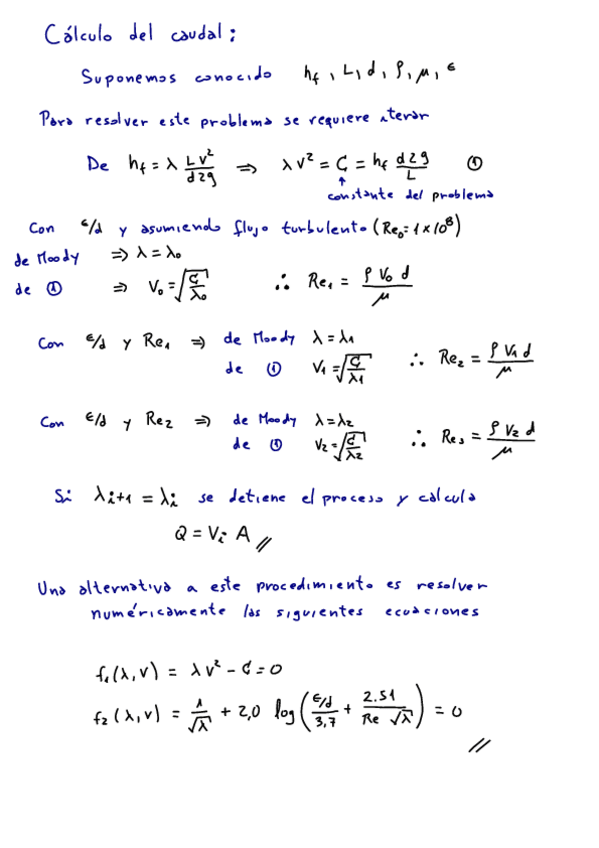 Cálculo del caudal:
Suponemos conocido hf, L, d, ρ, μ, ε
Para resolver este problema se requiere iterar
De hf = λ LV²/d2g ⇒ λV² = C = hf d2g/L ①
↑
constante del problema
Con ε/d y asumiendo flujo turbulento (Re₀ = 1×10⁸)
de Moody ⇒ λ = λ₀
de ① ⇒ V₀ = √(C/λ₀) ∴ Re₁ = ρ V₀ d/μ
Con ε/d y Re₁ ⇒ de Moody λ = λ₁
de ① V₁ = √(C/λ₁) ∴ Re₂ = ρ V₁ d/μ
Con ε/d y Re₂ ⇒ de Moody λ = λ₂
de ① V₂ = √(C/λ₂) ∴ Re₃ = ρ V₂ d/μ
Si λi+1 = λi se detiene el proceso y calcula
Q = Vi A //
Una alternativa a este procedimiento es resolver
numéricamente las siguientes ecuaciones
f₁(λ,V) = λV² - C = 0
f₂(λ,V) = 1/√λ + 2,0 log(ε/d/3,7 + 2.51/Re √λ) = 0
//